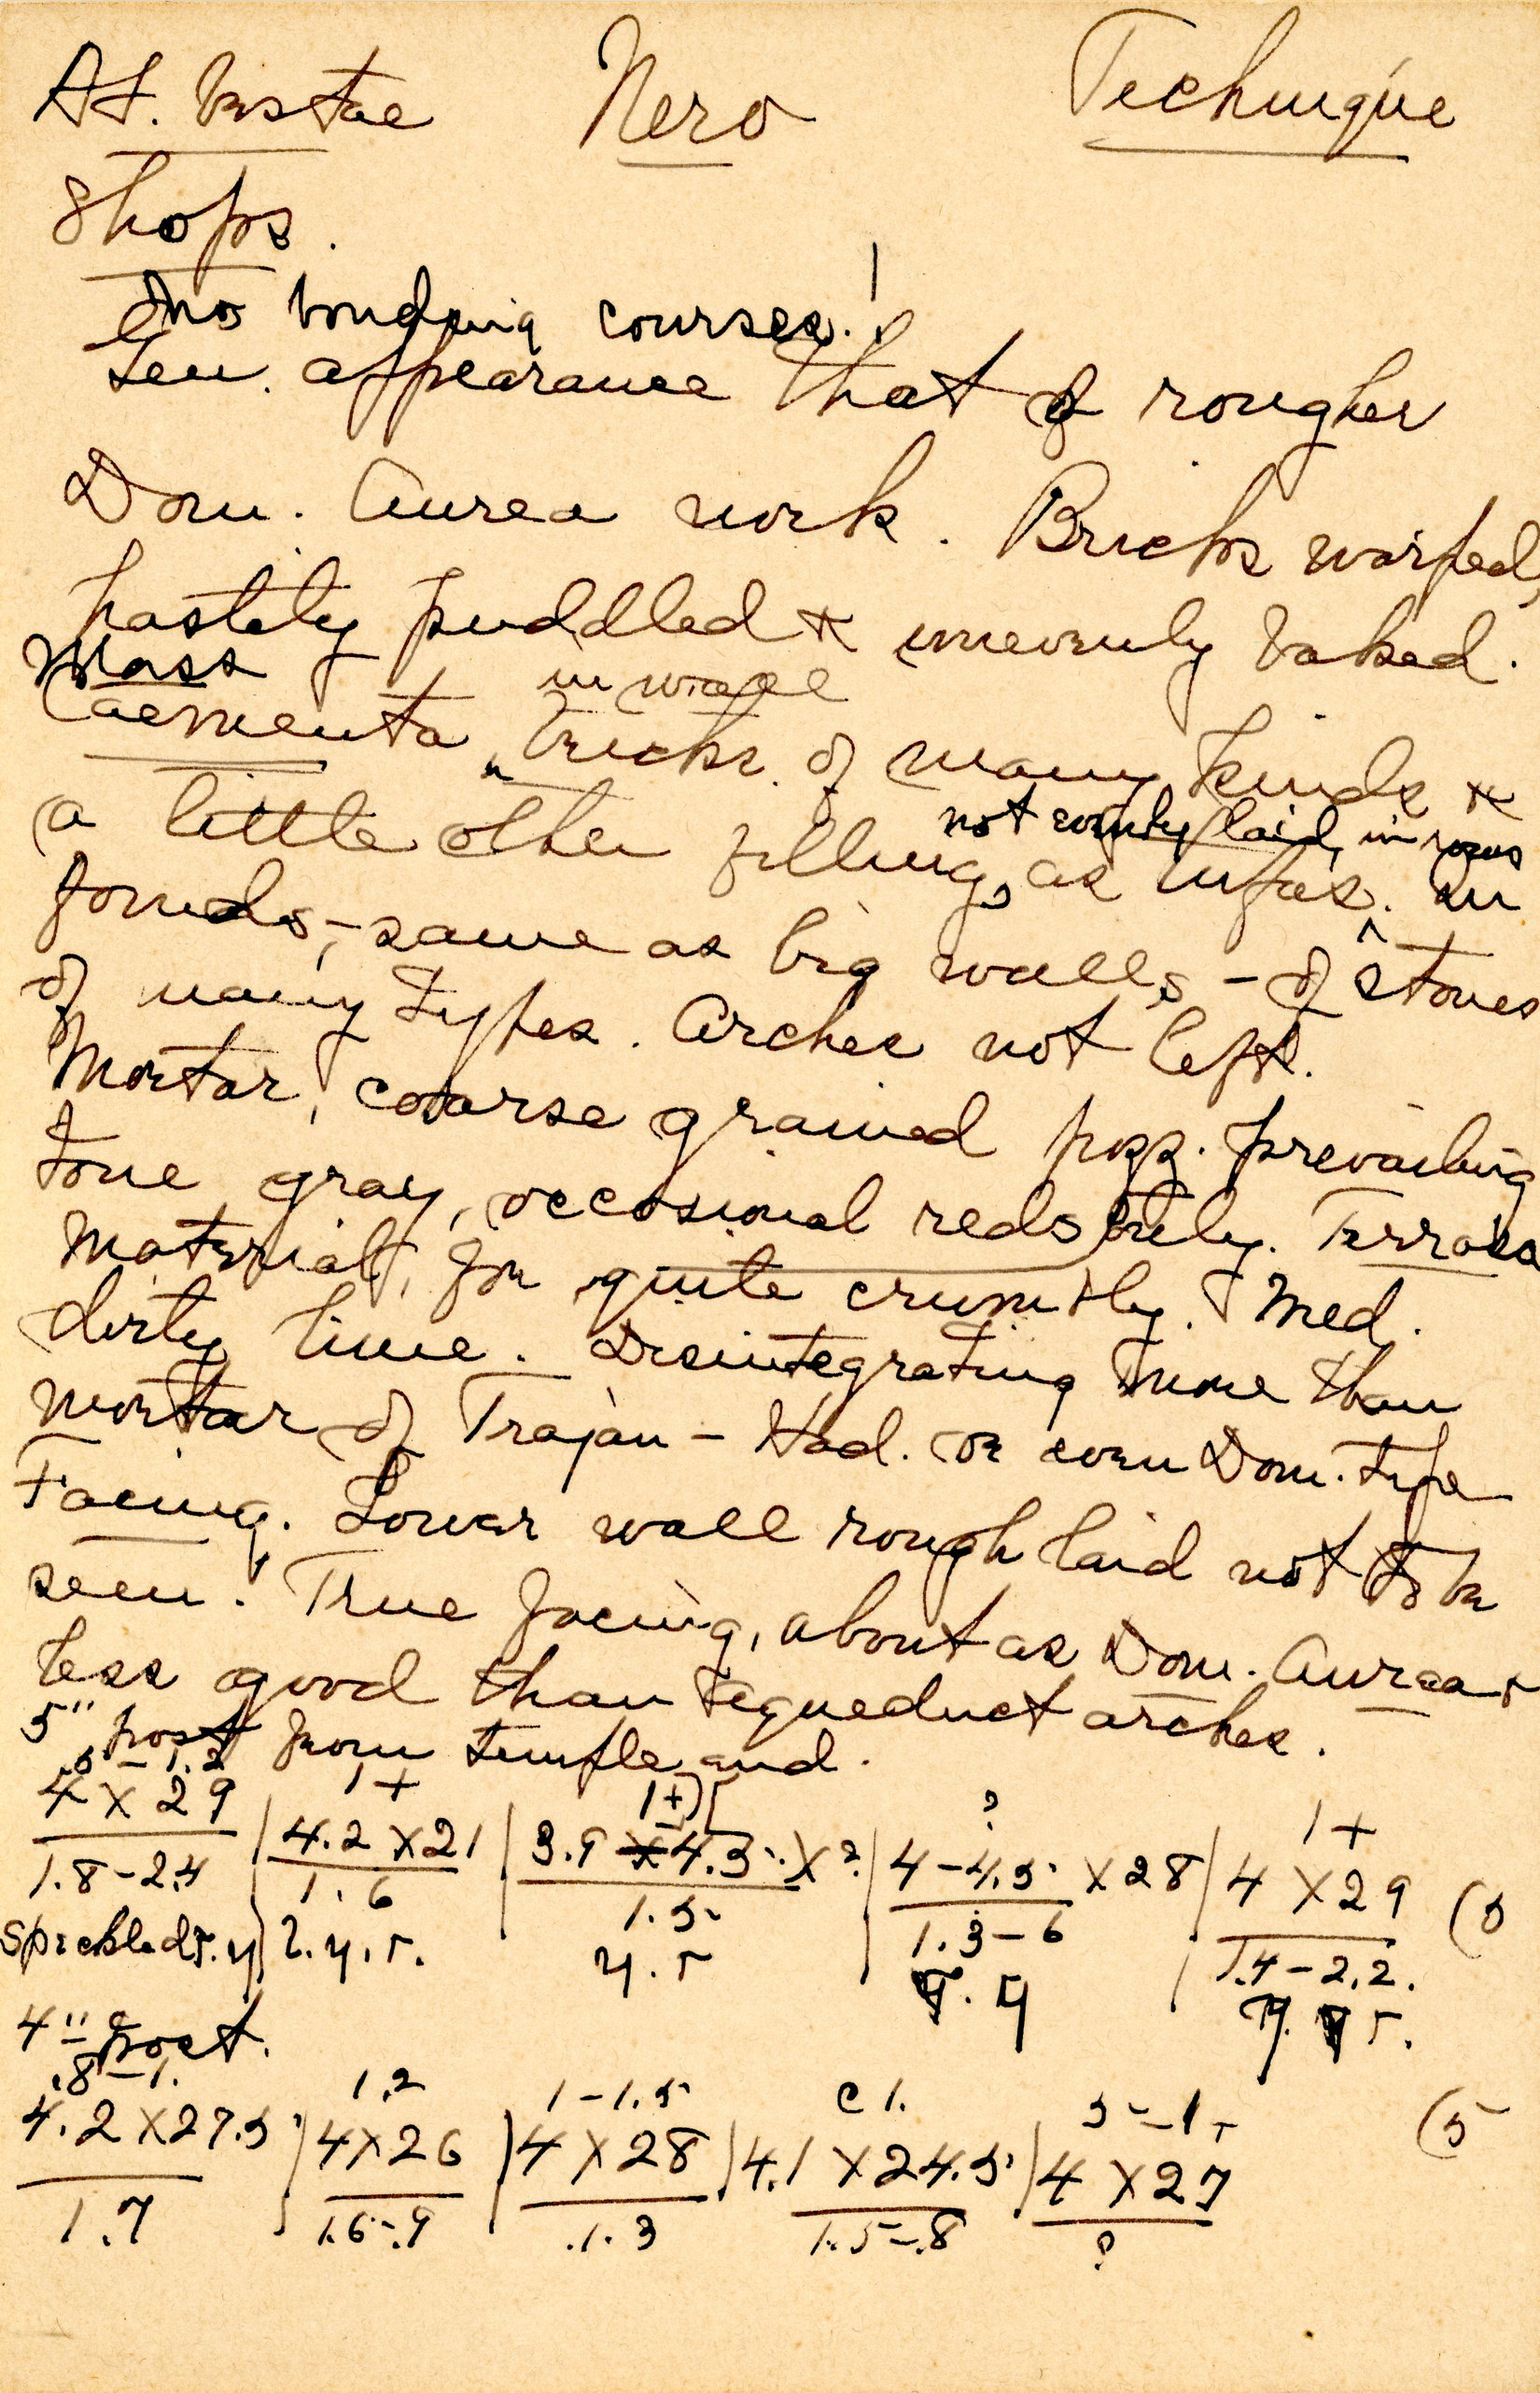 At. Vestae Nero Technique
Shops.
no bonding courses!
Gen. appearance that of rougher
Dom. Aurea work. Bricks warped,
hastily puddled & unevenly baked.
Mass in wall
Caementa, bricks of many kinds &
not evenly laid, in rows
a little other filling, as tufas. In
founds, - same as big walls, - of stones
of many types. Arches not left.
Mortar, coarse grained pozz. prevailing
tone gray, occasional reds, only. Terrosa
Material, for quite crumbly. Med.
dirty lime. Disintegrating more than
mortar of Trajan - Had. or even Dom. type
Facing. Lower wall rough laid not to be
seen. True facing, about as Dom. Aurea &
less good than aqueduct arches.
5" post from temple end.
.8-1.2 1+ 1+ ? 1+
4 X 29 | 4.2 X 21 | 3.9 4.5 X ? | 4-4.5 X 28 | 4 X 29 (5
1.8-2.4 1.6 1.5 1.3-6 1.4-2.2.
Speckled r. y | r. y. r. y. r r. y y. r.
4" post.
.8-1. 1.2 1-1.5 c 1. 5-1+ (5
4.2 X 27.5 | 4 X 26 | 4 X 28 | 4.1 X 24.5 | 4 X 27
1.7 1.6-.9 .1.3 1.5-.8 ?